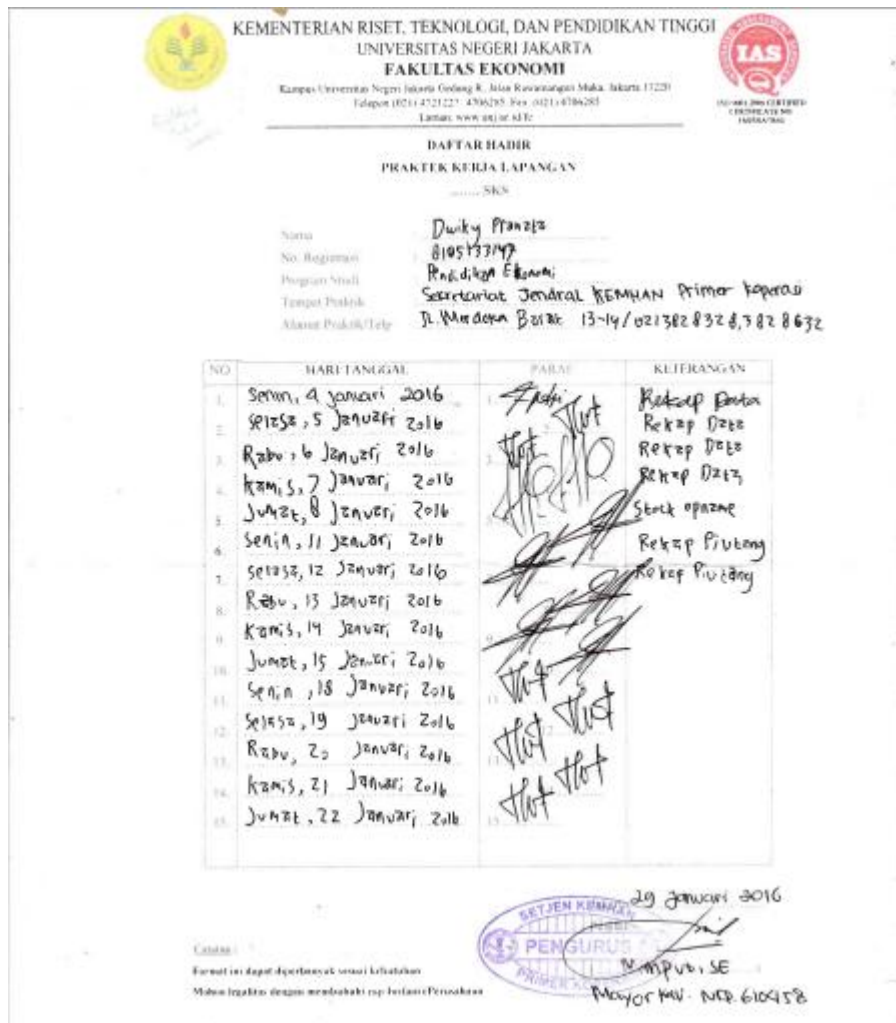 KEMENTERIAN RISET, TEKNOLOGI, DAN PENDIDIKAN TINGGI
UNIVERSITAS NEGERI JAKARTA
FAKULTAS EKONOMI
Kampus Universitas Negeri Jakarta Gedung R, Jalan Rawamangun Muka, Jakarta 13220
Laman: www.unj.ac.id/fe
IAS
DAFTAR HADIR
PRAKTEK KERJA LAPANGAN
........ SKS
Nama Dwiky Pranata
No. Registrasi
Program Studi Pendidikan Ekonomi
Tempat Praktik Sekretariat Jendral KEMHAN Primer Koperasi
Alamat Praktik/Telp Jl. Merdeka Barat 13-14/0213828328,3828632
NO HARI TANGGAL PARAF KETERANGAN
1. Senin, 4 januari 2016 Rekap Data
2. Selasa, 5 Januari 2016 Rekap Data
3. Rabu, 6 Januari 2016 Rekap Data
4. Kamis, 7 Januari 2016 Rekap Data
5. Jumat, 8 Januari 2016 Stock opname
6. Senin, 11 Januari 2016 Rekap Piutang
7. Selasa, 12 Januari 2016 Rekap Piutang
8. Rabu, 13 Januari 2016
9. Kamis, 14 Januari 2016
10. Jumat, 15 Januari 2016
11. Senin, 18 Januari 2016
12. Selasa, 19 Januari 2016
13. Rabu, 20 Januari 2016
14. Kamis, 21 Januari 2016
15. Jumat, 22 Januari 2016
29 Januari 2016
SETJEN KEMHAN
PENGURUS
PRIMER
SE
Mayor
Catatan :
Format ini dapat diperbanyak sesuai kebutuhan
Mohon legalitas dengan membubuhi cap Instansi/Perusahaan